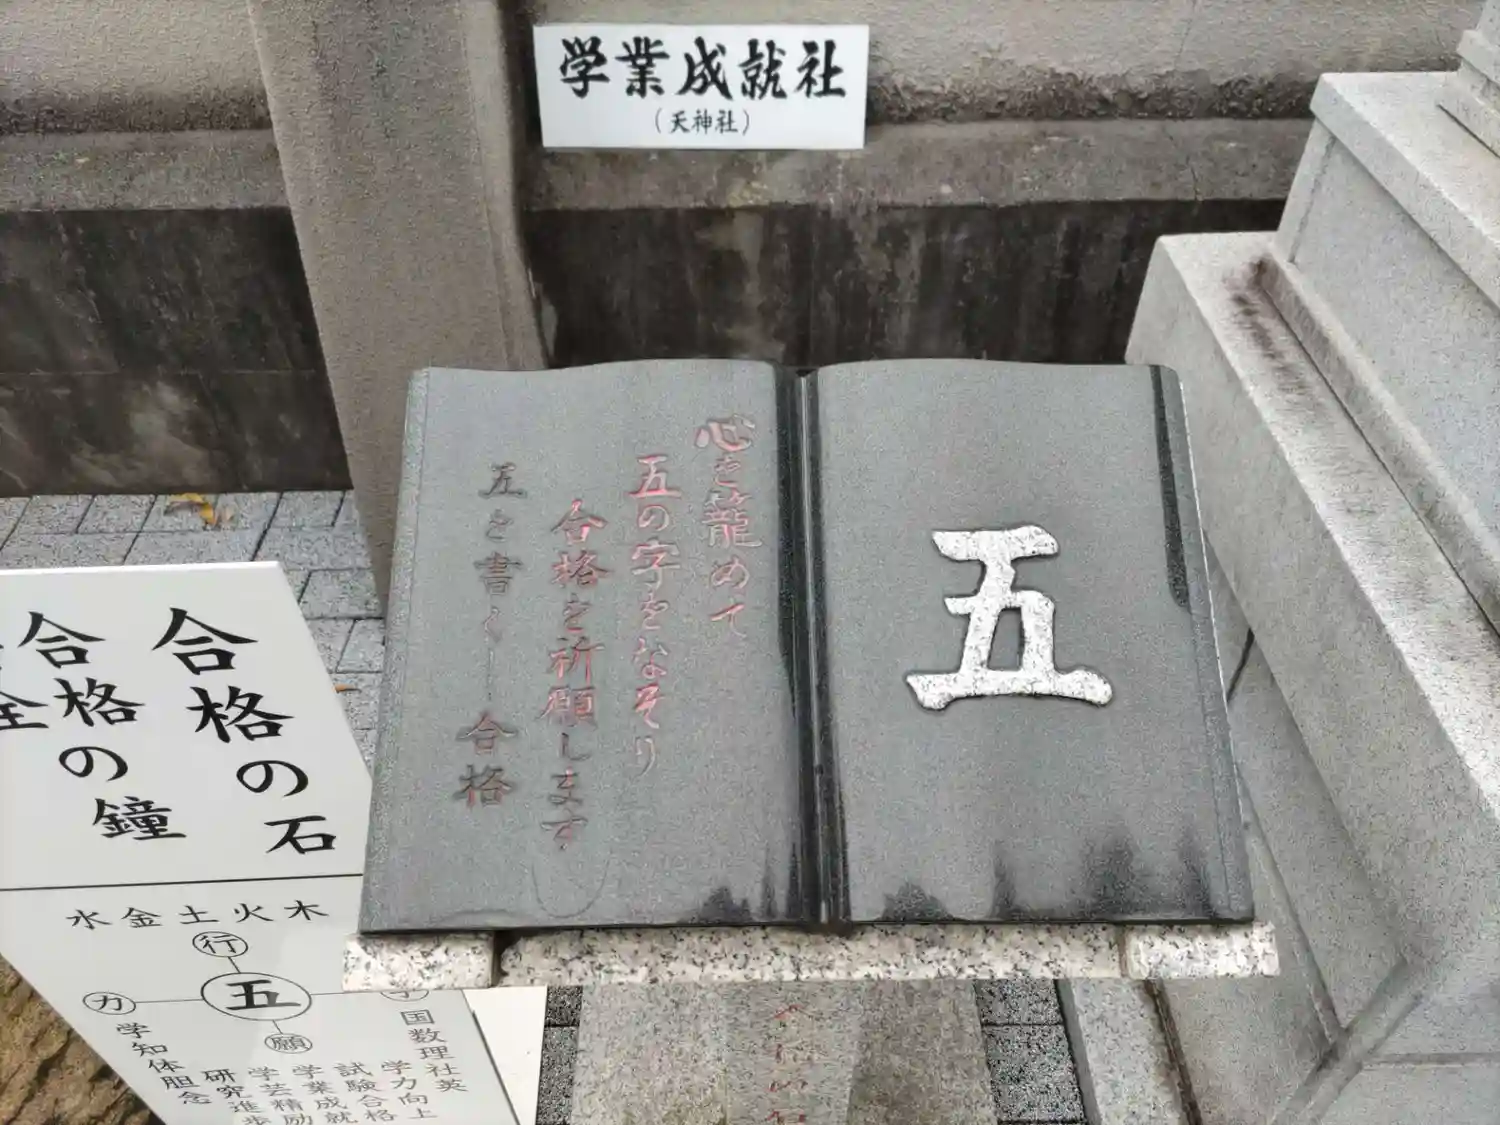 学業成就社
（天神社）
五
心を籠めて
五の字をなぞり
合格を祈願します
五を書く―合格
合格の石
合格の鐘
水金土火木
行
五
力
願
国数理社英
学力向上
試験合格
学業成就
学芸精励
研究進歩
学知体胆念